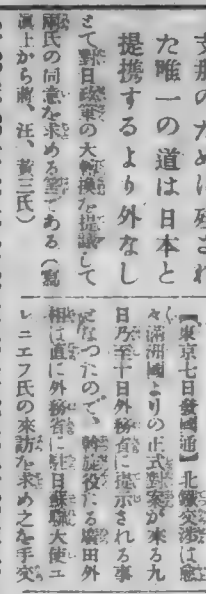 支那のために残され
た唯一の道は日本と
提携するより外なし
とて對日政策の大轉換を提議して
兩氏の同意を求める筈である（寫
眞上から蔣、汪、黃三氏）
【東京七日發國通】北鐵交渉は愈
々滿洲國よりの正式對案が來る九
日乃至十日外務省に提示される事
となつたので、斡旋役たる廣田外
相は直に外務省に駐日蘇聯大使ユ
レニエフ氏の來訪を求め之を手交